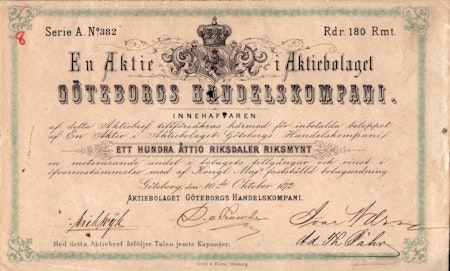 8
Serie A. Nº 382
Rdr. 180 Rmt.
En Aktie i Aktiebolaget
GÖTEBORGS HANDELSKOMPANI.
INNEHAFVAREN
af detta Aktiebref tillförsäkras härmed för inbetalda beloppet
af En Aktie i Aktiebolaget Göteborgs Handelskompani
ETT HUNDRA ÅTTIO RIKSDALER RIKSMYNT
en motsvarande andel i bolagets tillgångar och vinst i
öfverensstämmelse med af Kongl. Maj:t fastställd bolagsordning.
Göteborg, den 10de Oktober 1872.
AKTIEBOLAGET GÖTEBORGS HANDELSKOMPANI.
Med detta Aktiebref åtföljer Talon jemte Kuponger.